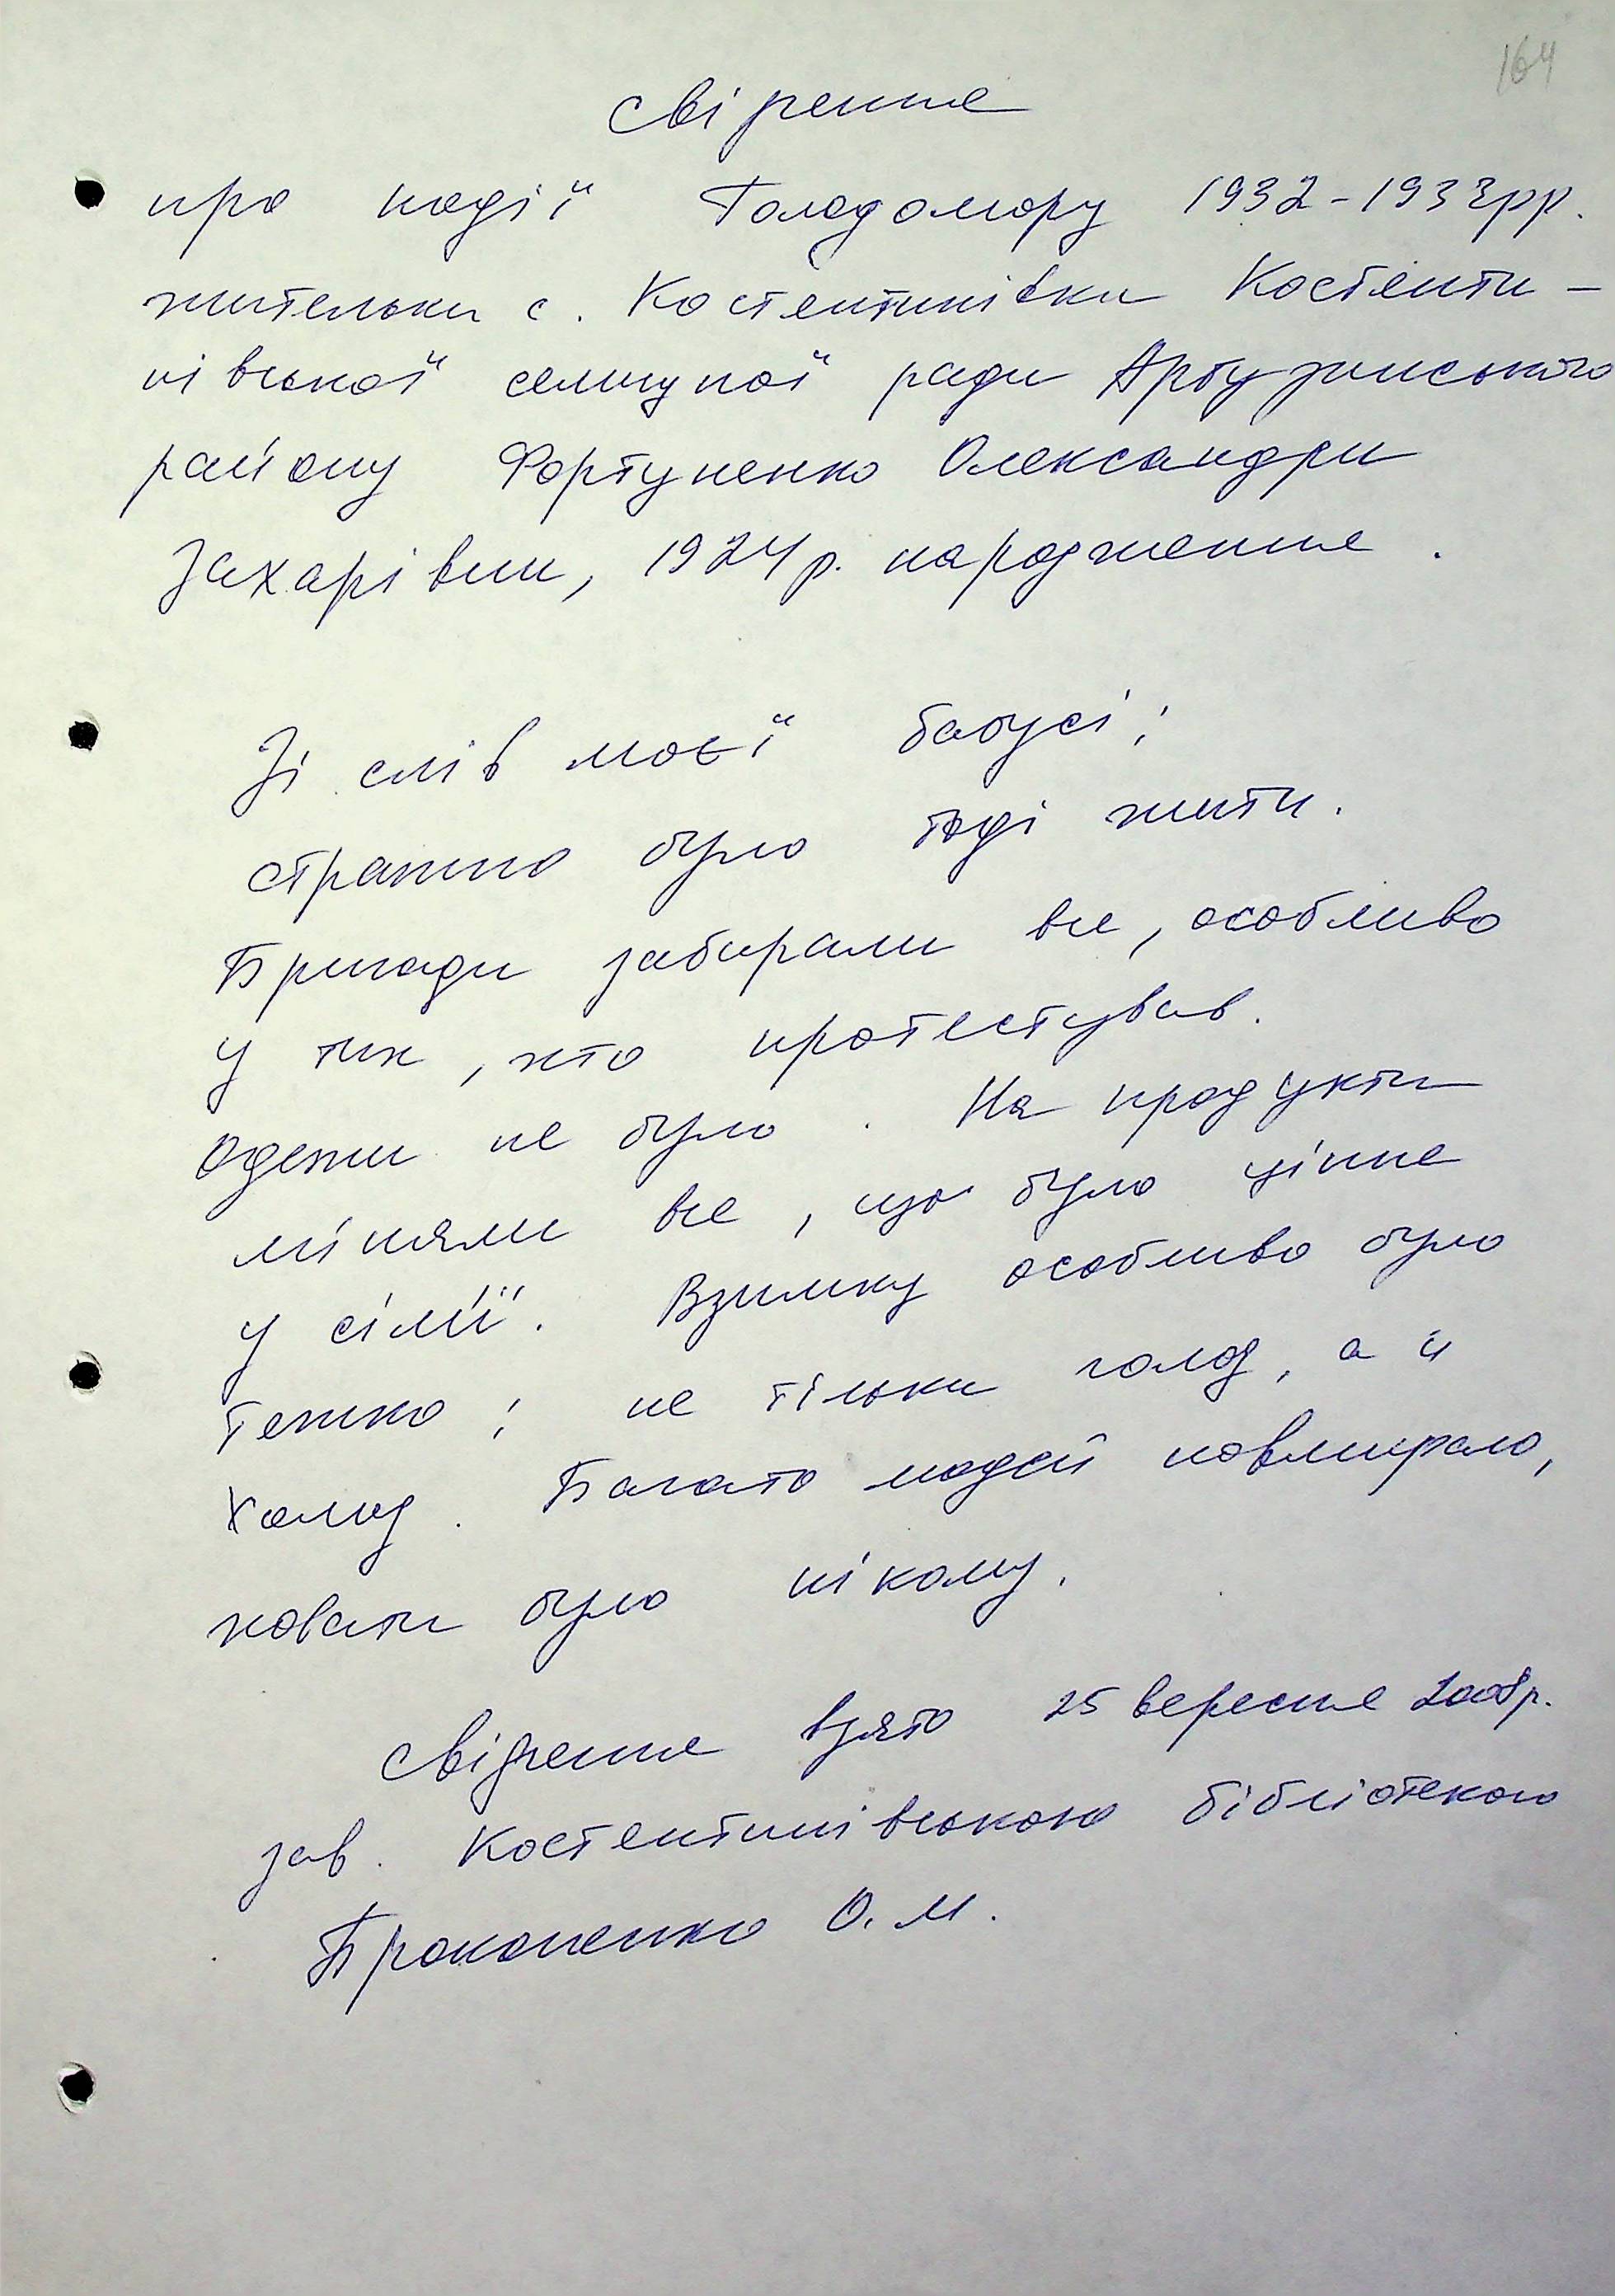 164
Свідчення
про події Голодомору 1932-1933рр.
жительки с. Костянтинівки Костянти-
нівської селищної ради Арбузинського
району Фортуненко Олександри
Захарівни, 1924р. народження.
Зі слів моєї бабусі:
страшно було тоді жити.
Бригади забирали все, особливо
у тих, хто протестував.
Одежи не було. На продукти
міняли все, що було цінне
у сім'ї. Взимку особливо було
тяжко: не тільки голод, а й
холод. Багато людей повмирало,
ховати було нікому.
Свідчення взято 25 вересня 2008р.
зав. Костянтинівською бібліотекою
Прокопенко О.М.